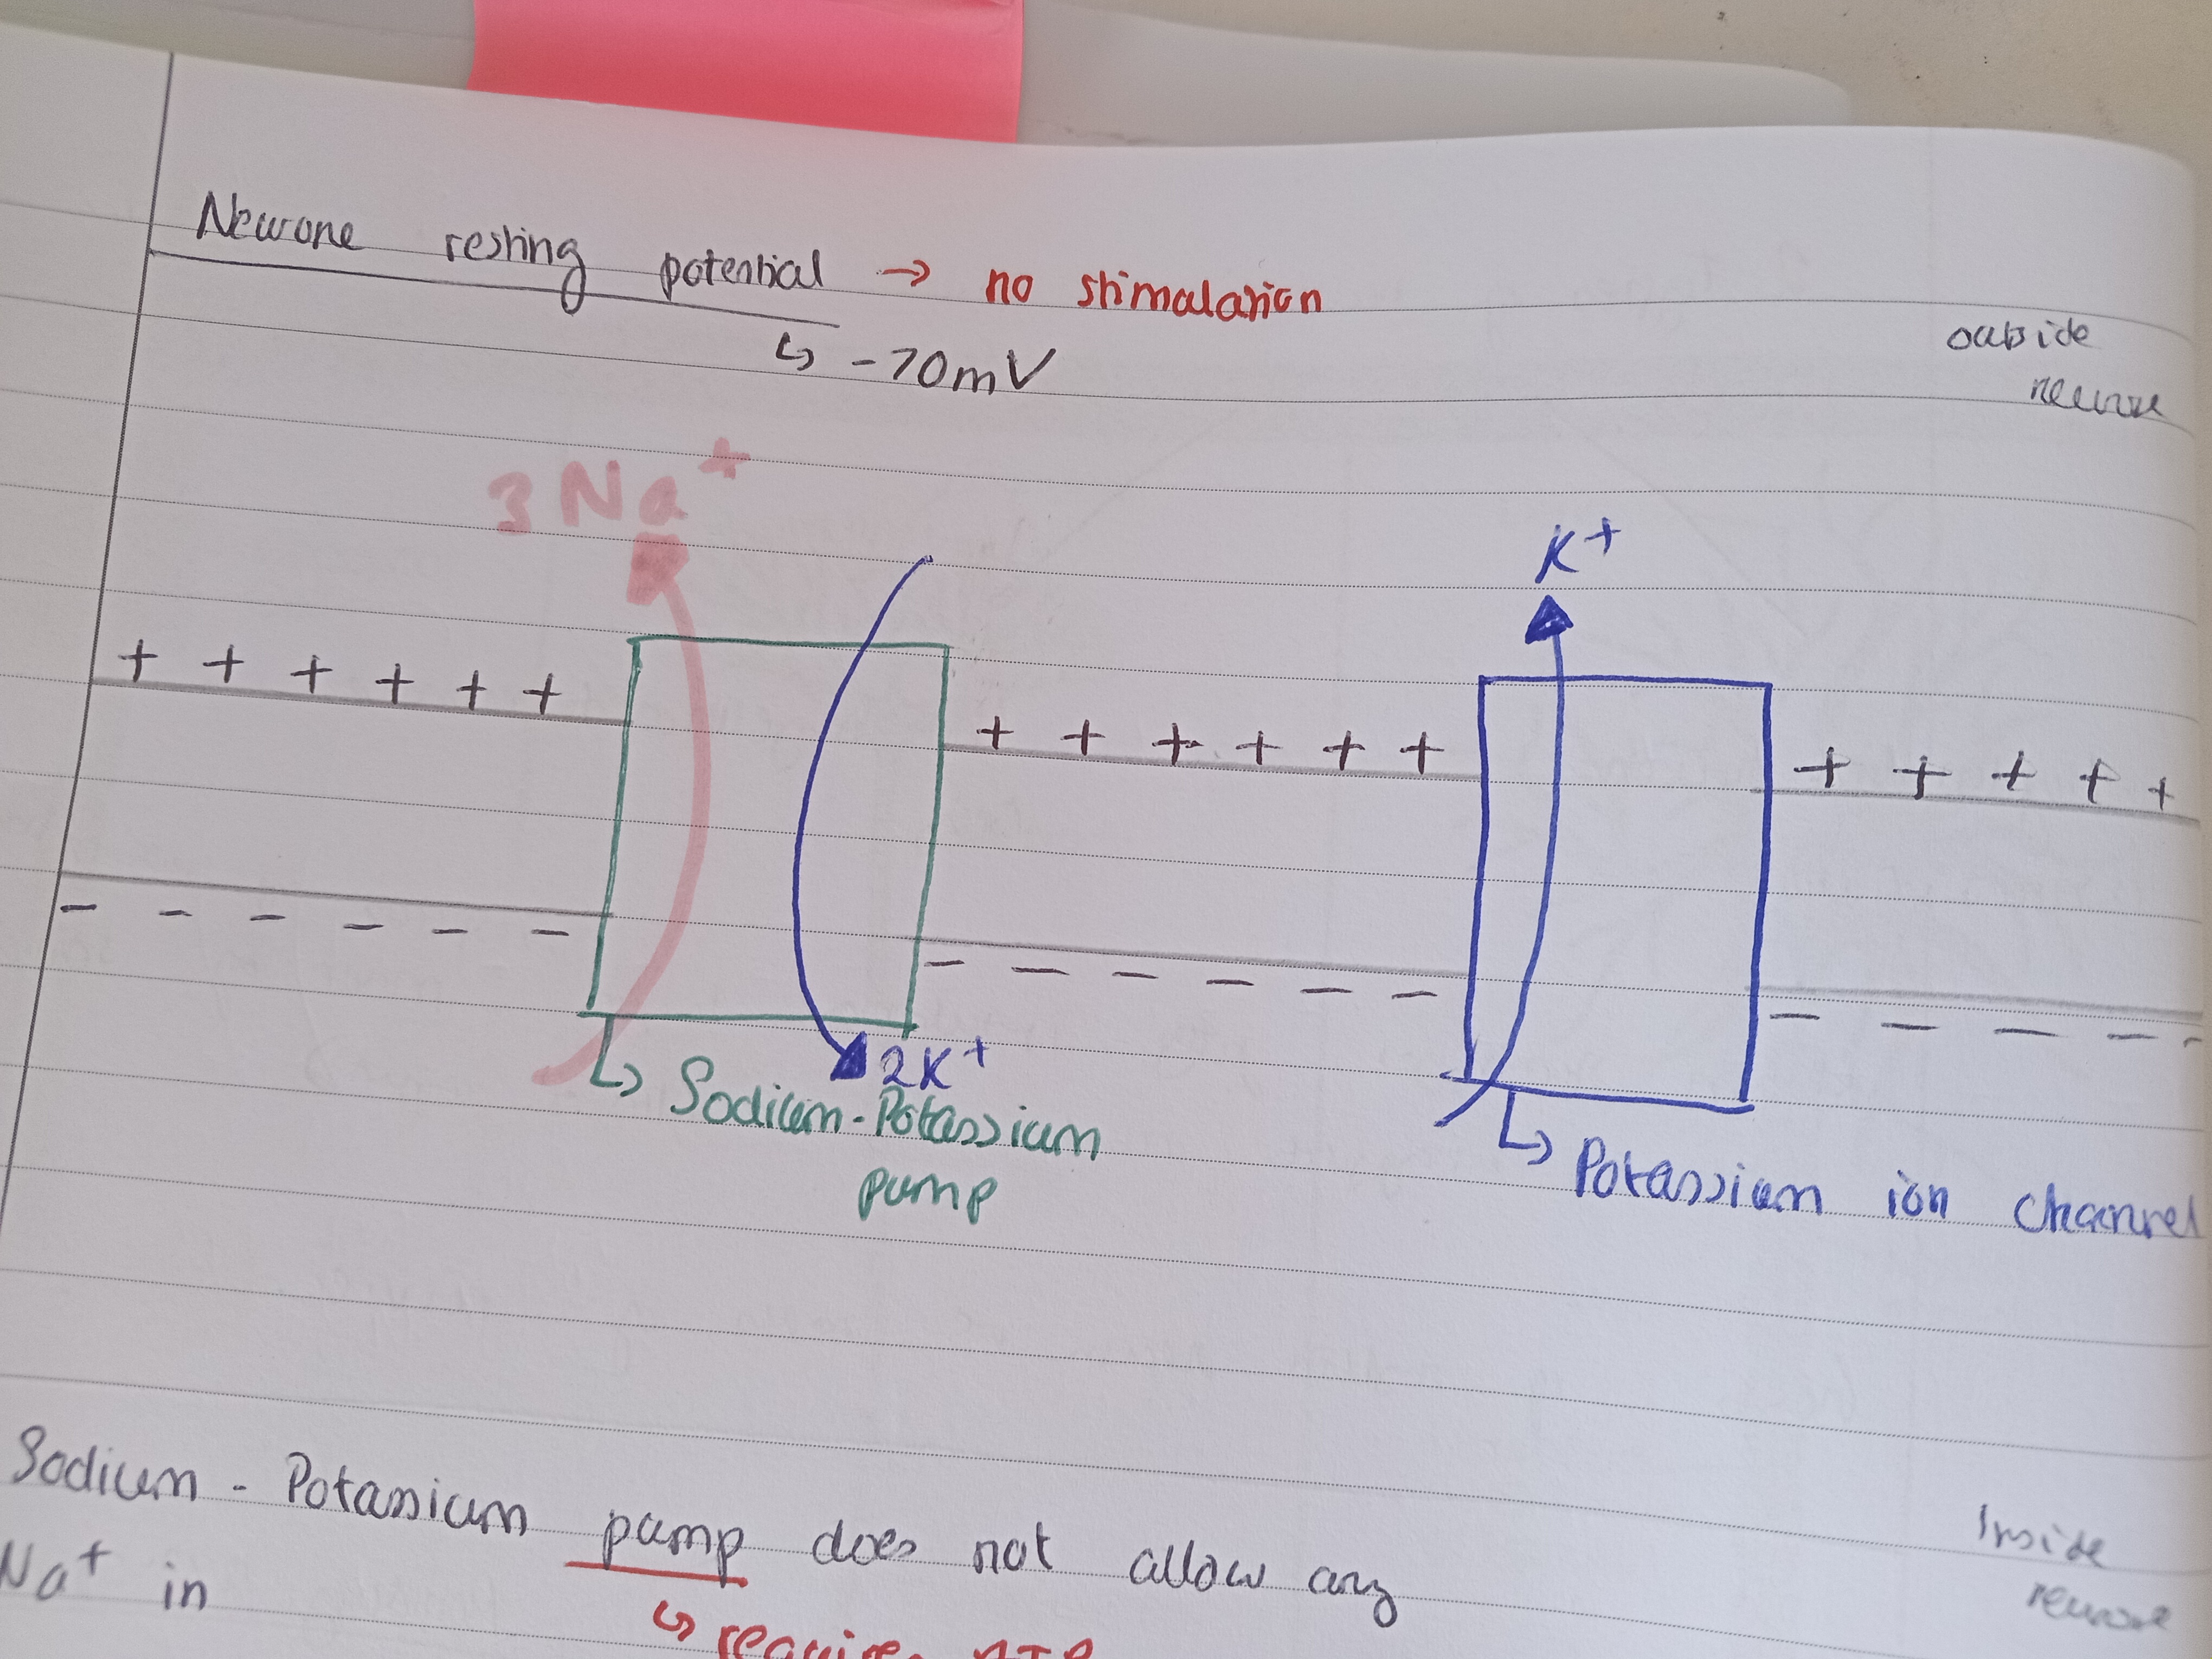 Neurone resting potential → no stimalation
↳ -70mV
outside
neurone
3 Na⁺
K⁺
+ + + + + +
+ + + + + +
+ + + + +
- - - - - -
- - - - - -
- - - - -
2K⁺
↳ Sodium-Potassium
pump
↳ Potassium ion channel
Inside
neurone
Sodium - Potassium pump does not allow any
Na⁺ in
↳ requires ATP